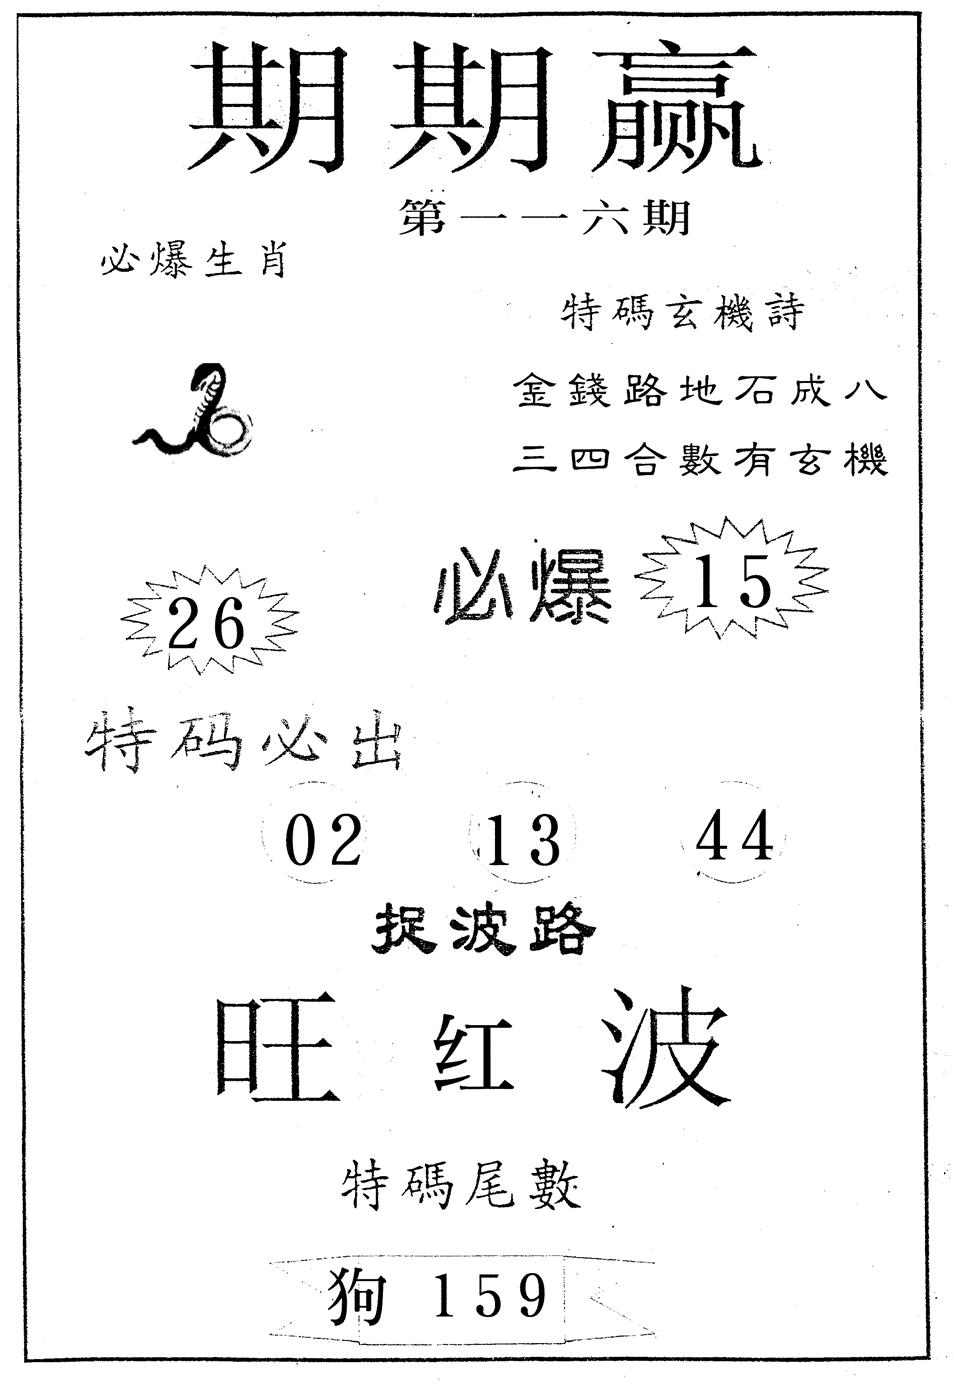 期期赢
第一一六期
必爆生肖
特碼玄機詩
金錢路地石成八
三四合數有玄機
必爆 15
26
特码必出
02 13 44
捉波路
旺红波
特碼尾數
狗 159